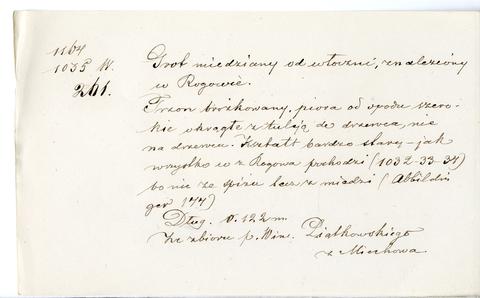 1164
1035 W.
261.
Grot miedziany od włóczni, znaleziony
w Rogowie.
Trzon bróżkowany, pióra od spodu szero-
kie okrągłe z tulają do drzewca, nie
na drzewcu. Kształt bardzo stary – jak
wszystko co z Rogowa pochodzi (1032-33-34)
bo nie ze spiżu lecz z miedzi (Abbildun
gen 177)
Dług. 0.122 m.
Ze zbioru p. Win. Piątkowskiego
z Miechowa.